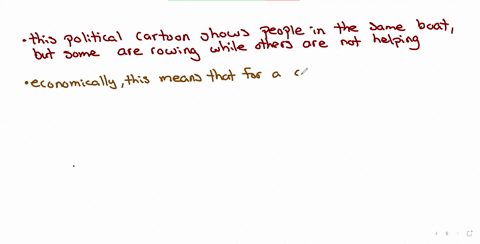 •this political cartoon shows people in the same boat,
but some are rowing while others are not helping
•economically, this means that for a